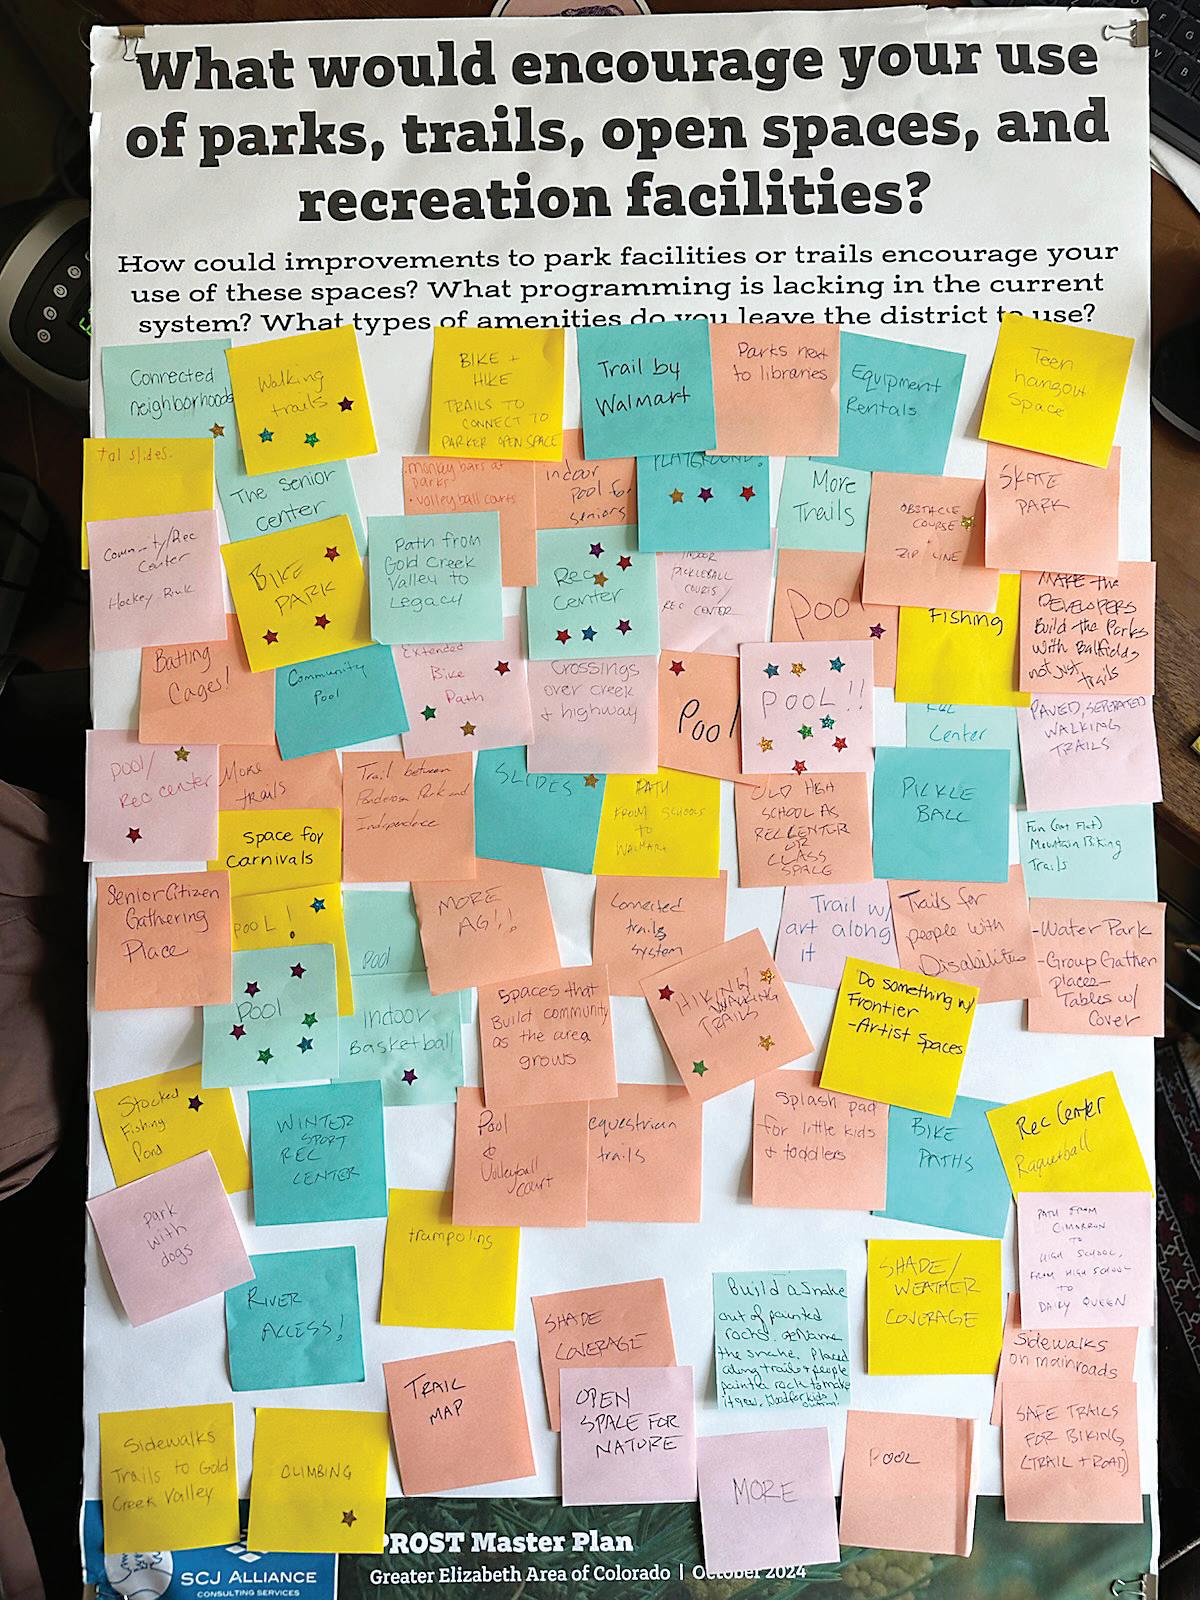 What would encourage your use
of parks, trails, open spaces, and
recreation facilities?
How could improvements to park facilities or trails encourage your
use of these spaces? What programming is lacking in the current
system? What types of amenities do you leave the district to use?
Connected
neighborhoods
Walking
trails
BIKE +
HIKE
TRAILS TO
CONNECT TO
PARKER OPEN SPACE
Trail by
Walmart
Parks next
to libraries
Equipment
Rentals
Teen
hangout
Space
tal slides.
The Senior
center
monkey bars at
parks
• volleyball courts
indoor
pool for
seniors
PLAYGROUND!
More
Trails
OBSTACLE
COURSE
ZIP LINE
SKATE
PARK
Center
Hockey Rink
BIKE
PARK
Path from
Gold Creek
Valley to
Legacy
Rec
Center
INDOOR
PICKLEBALL
COURTS/
REC CENTER
Poo
Fishing
MAKE the
DEVELOPERS
Build the Parks
with Ballfields
not just
trails
Batting
Cages!
Community
Pool
Extended
Bike
Path
Crossings
over creek
+ highway
Pool
POOL!!
Rec
Center
PAVED, SEPERATED
WALKING
TRAILS
pool/
Rec center
More
trails
Trail between
Ponderosa Park and
Independence
SLIDES
PATH
FROM SCHOOLS
TO
WALMART
OLD HIGH
SCHOOL AS
REC CENTER
OR
CLASS
SPACE
PICKLE
BALL
Fun (not Flat)
Mountain Biking
Trails
space for
Carnivals
Senior Citizen
Gathering
Place
POOL!
Pool
MORE
AG!!
Connected
trails
system
Trail w/
art along
it
Trails for
people with
Disabilities
-Water Park
-Group Gather
place-
Tables w/
Cover
POOl
Indoor
Basketball
Spaces that
Build community
as the area
grows
HIKING/
WALKING
TRAILS
Do something w/
Frontier
-Artist Spaces
Stocked
Fishing
Pond
WINTER
SPORT
REC
CENTER
Pool
&
Volleyball
court
equestrian
trails
Splash pad
for little kids
+ toddlers
BIKE
PATHS
Rec Center
Raquetball
park
with
dogs
RIVER
ACCESS!
trampoling
SHADE
COVERAGE
Build a snake
out of painted
rocks.
the snake. Placed
along trail + people
paint a rock to make
it grow. Good for kids!
SHADE/
WEATHER
COVERAGE
PATH FROM
CIMARRON
TO
HIGH SCHOOL,
FROM HIGH SCHOOL
TO
DAIRY QUEEN
Sidewalks
on mainroads
TRAIL
MAP
OPEN
SPACE FOR
NATURE
SAFE TRAILS
FOR BIKING
(TRAIL + ROAD)
Sidewalks
Trails to Gold
Creek Valley
CLIMBING
MORE
POOL
PROST Master Plan
Greater Elizabeth Area of Colorado | October 2024
SCJ ALLIANCE
CONSULTING SERVICES